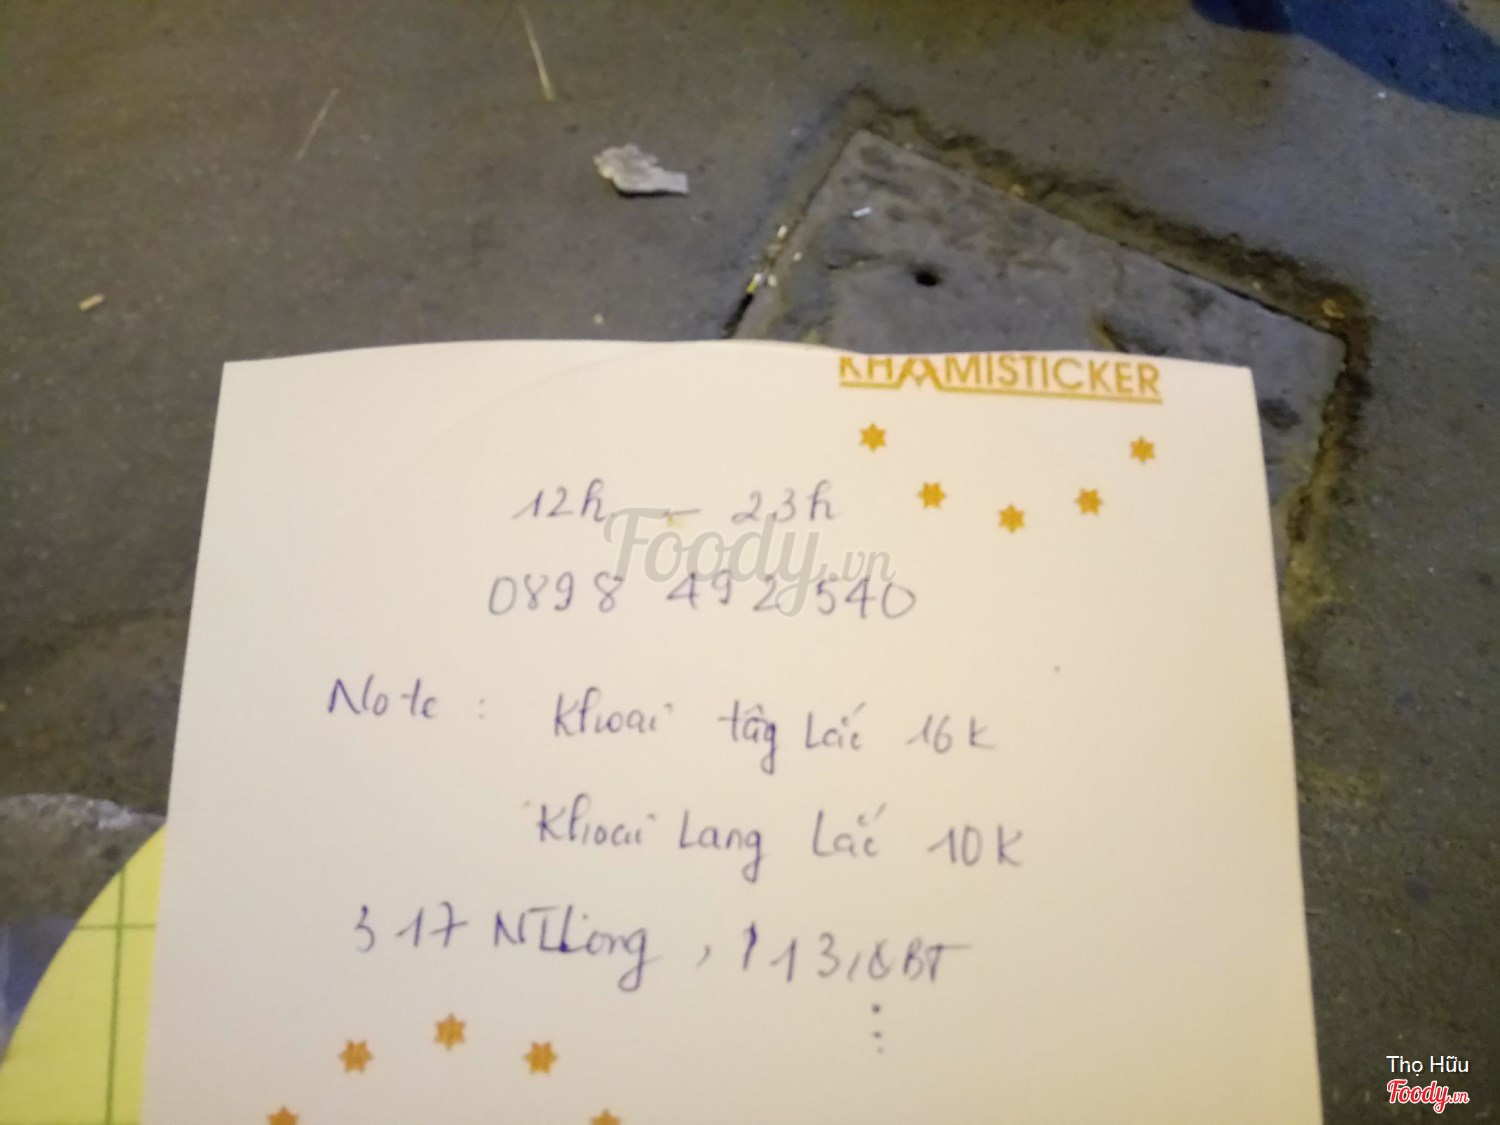 KHAMISTICKER
12h - 23h
Foody.vn
0898 492 540
Note : Khoai tây Lắc 16K
Khoai Lang Lắc 10K
317 NTLong, P13, QBT
Thọ Hữu
Foody.vn